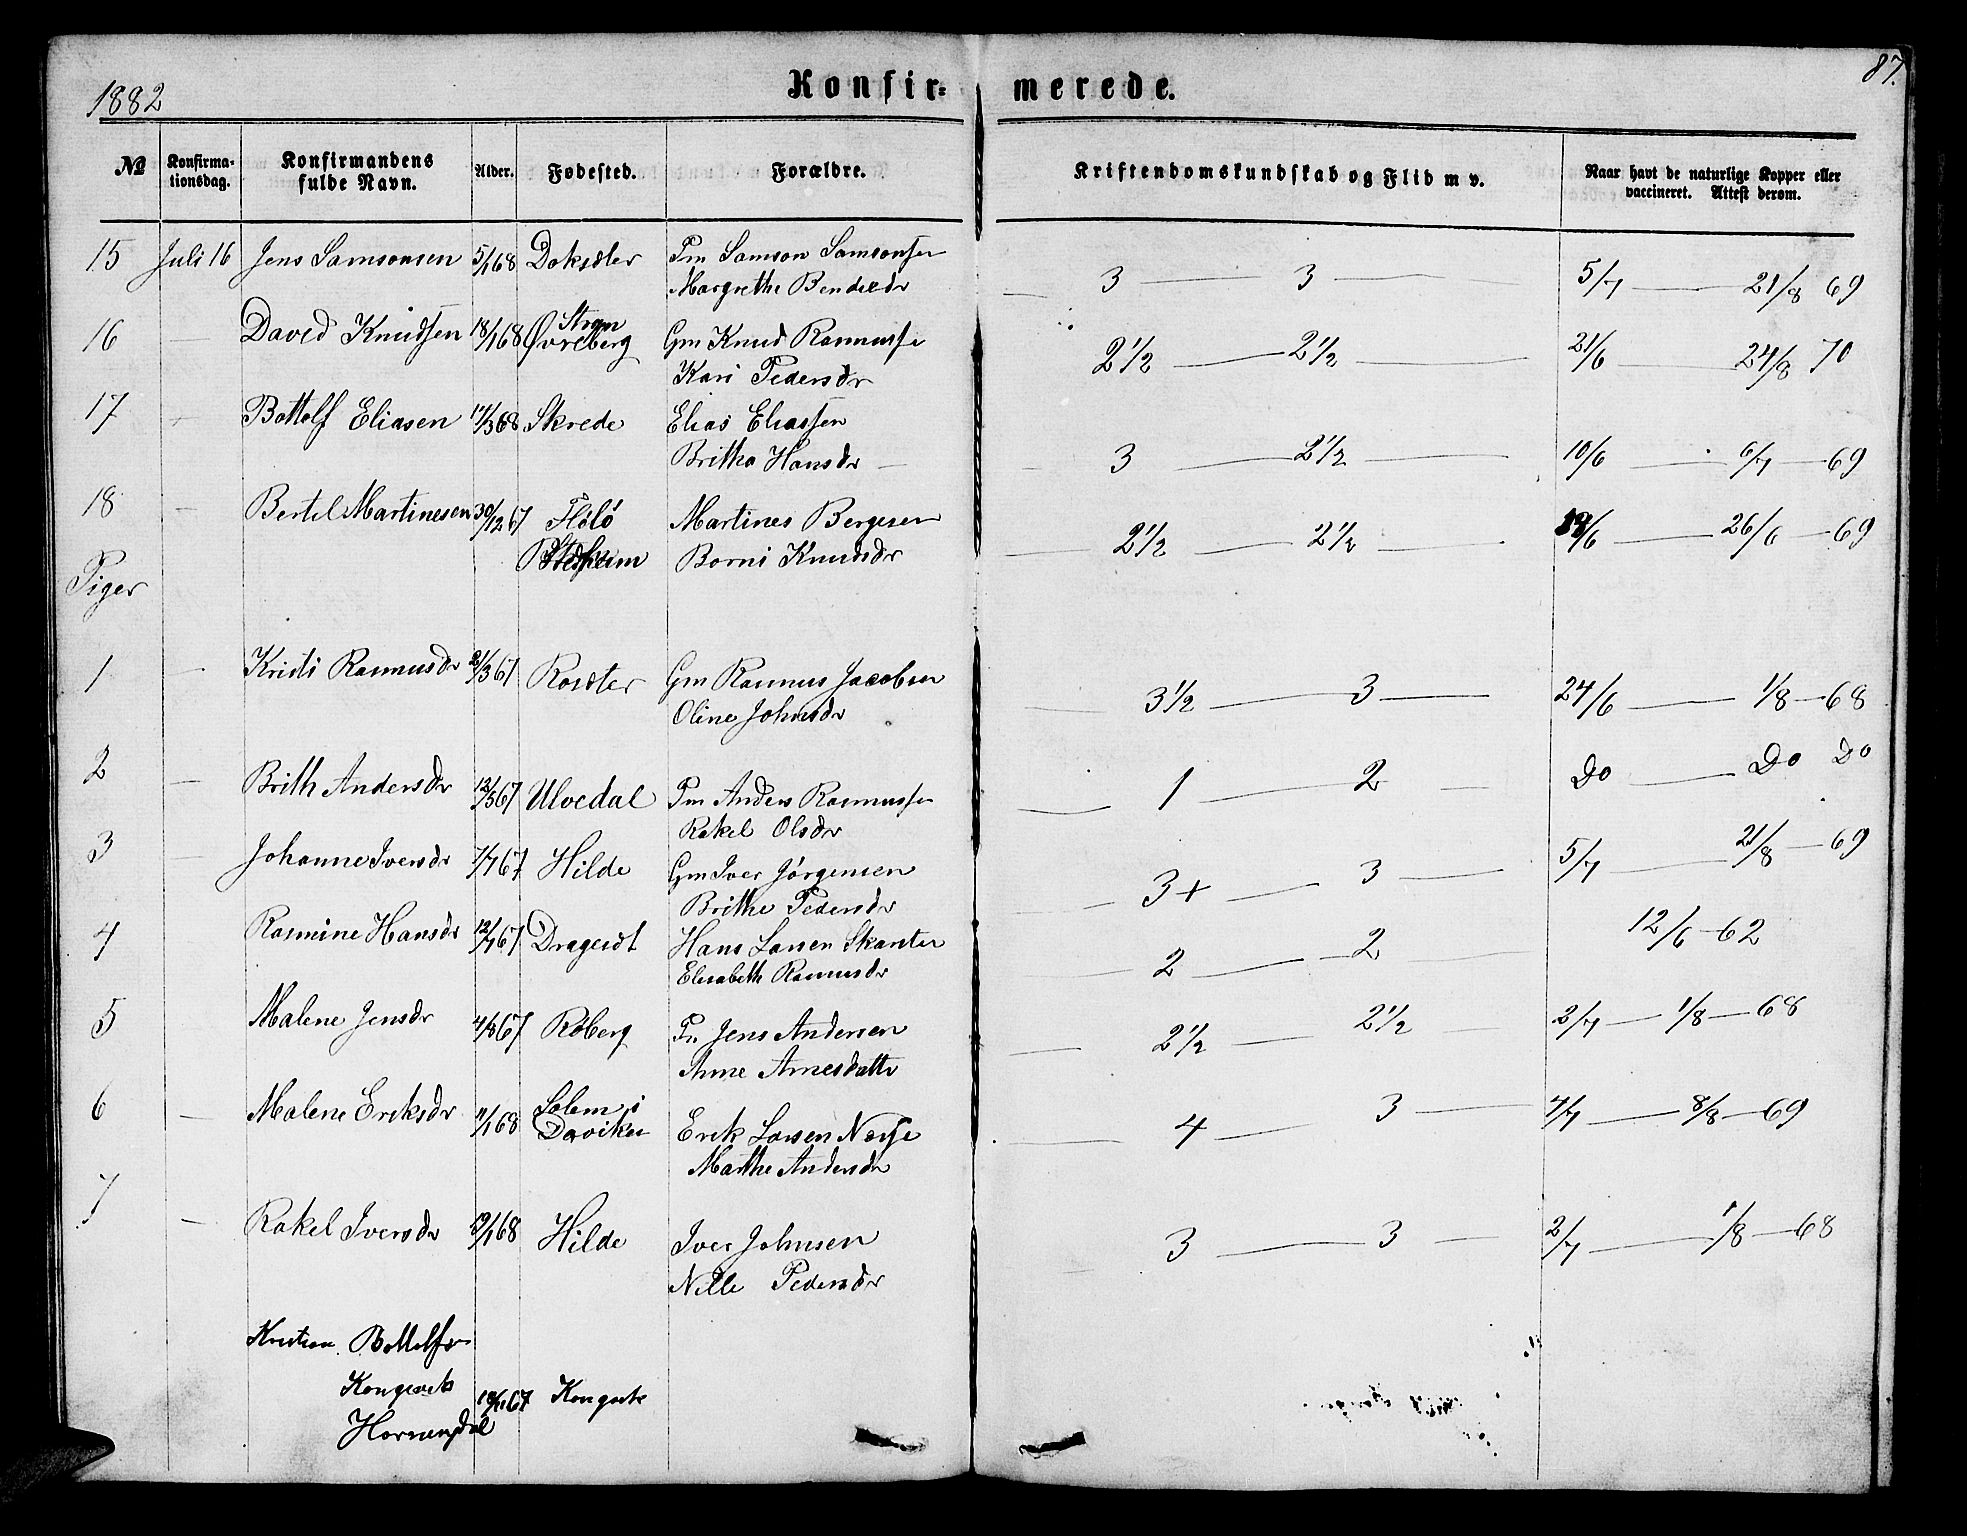 1882 Konfir= merede. 87.
No Konfirma-tionsdag. Konfirmandens fulde Navn. Alder. Fødested. Forældre. Kristendomskundskab og Flid m v. Naar havt de naturlige Kopper eller vaccineret. Attest derom.
15 Juli 16 Jens Samsonsen 5/1 68 Pm Samson Samsonsen 3 — 3 — 5/7 — 21/8 69
Margrethe
16 — David Knudsen 18/1 68 Øvreberg Gm Knud Rasmussen 2 1/2 — 2 1/2 — 21/6 — 24/8 70
Kari Pedersdr
17 — Bottolf Eliasen 17/3 68 Skrede Elias Eliassen
Britha Hansdr 3 — 2 1/2 — 10/6 — 6/7 — 69
18 — Bertel Martinesen 30/12 67 Flölö Martines Bergesen 26/6 — 69
Borni Knudsdr 2 1/2 — 2 1/2 —
Piger
1 — Kristi Rasmusdr 21/3 67 Gm Rasmus Jacobsen 3 1/2 — 3 — 24/6 — 1/8 — 68
Oline Johnsdr
2 — Brith Andersdr 12/5 67 Ulvedal Pm Anders Rasmussen 1 — 2 — Do — Do Do
Rakel Olsdr
3 — Johanne Iversdr 1/7 67 Hilde Gm Iver Jörgensen 3+ — 3 — 5/7 — 21/8 — 69
Brithe Pedersdr
4 Rasmine Hansdr 12/7 67 Hans Larsen 2 — 2 — 12/6 — 62
Elisabeth Rasmusdr
5 Malene Jensdr 4/8 67 Röberg Jens Andersen 2 1/2 — 2 1/2 — 2/7 — 1/8 — 68
Anne Arnesdatte
6 — Malene Eriksdr 11/1 68 Solem i
Daviken Erik Larsen 4 — 3 — 4/7 — 8/8 — 69
Marthe Andersdr
7 — Rakel Iversdr 12/1 68 Hilde Iver Johnsen 3 — 3 — 2/7 — 1/8 — 68
Nille Pedersdr
Kristian
Kongsvik 67
Hornengdal